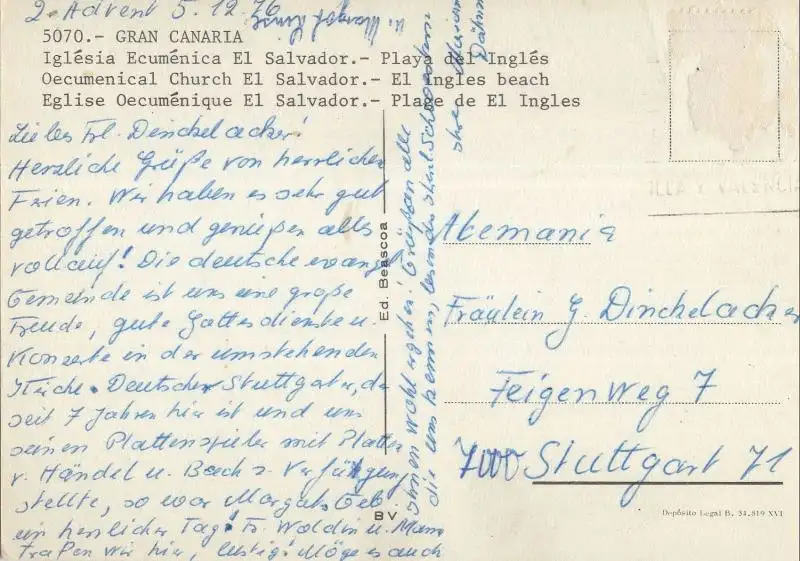 2. Advent 5.12.76
5070.- GRAN CANARIA
Iglésia Ecuménica El Salvador.- Playa del Inglés
Oecumenical Church El Salvador.- El Ingles beach
Eglise Oecuménique El Salvador.- Plage de El Ingles
Liebes Frl. Dinckelacker!
Herzliche Grüße von herrlichen
Ferien. Wir haben es sehr gut
getroffen und genießen alles
vollauf! Die deutsche evangl
Gemeinde ist uns eine große
Freude, gute Gottesdienste u.
Konzerte in der umstehenden
Kirche. Deutscher Stuttgarter, der
seit 7 Jahren hier ist und uns
seinen Plattenspieler mit Platten
v. Händel u. Bach z. Verfügung
stellte, so war Margots Geb.
ein herrlicher Tag! Fr. Woldin u. Mann
trafen wir hier, lustig! Möge es auch
Ihnen wohl ergehen! Grüßen alle
die uns kennen, besonders Ihre Schwestern
Ihre
u. Margot
Ed. Beascoa
BV
ILLA Y VALENCIA
Alemania
Fräulein G. Dinckelacker
Feigenweg 7
7000 Stuttgart 71
Depósito Legal B. 34.819 XVI